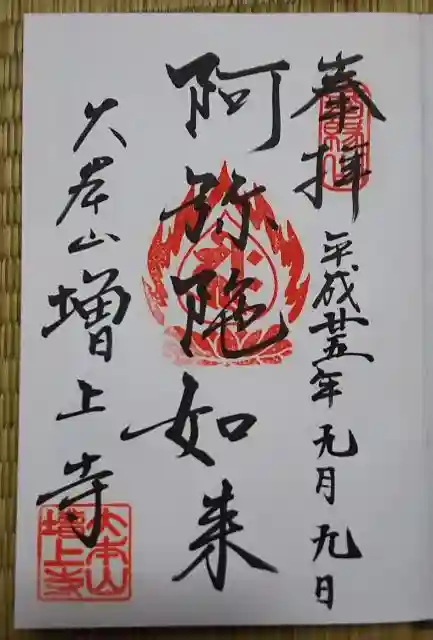 奉拝
平成廿五年九月九日
阿弥陀如来
大本山増上寺
大本山
増上寺